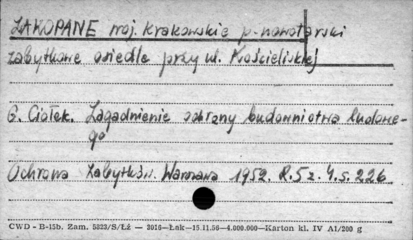 ZAKOPANE woj. krakowskie p. nowotarski
zabytkowe osiedle przy ul. Kościeliskiej
G. Ciołek. Zagadnienie ochrony budownictwa ludowe-
go
Ochrona Zabytków. Warszawa 1952. R.5 z.4. s. 226
CWD - B-15b. Zam. 5323/S/Łź — 2016—Łek—15.11.56—4.000.000—Karton kl. IV A1/200 g